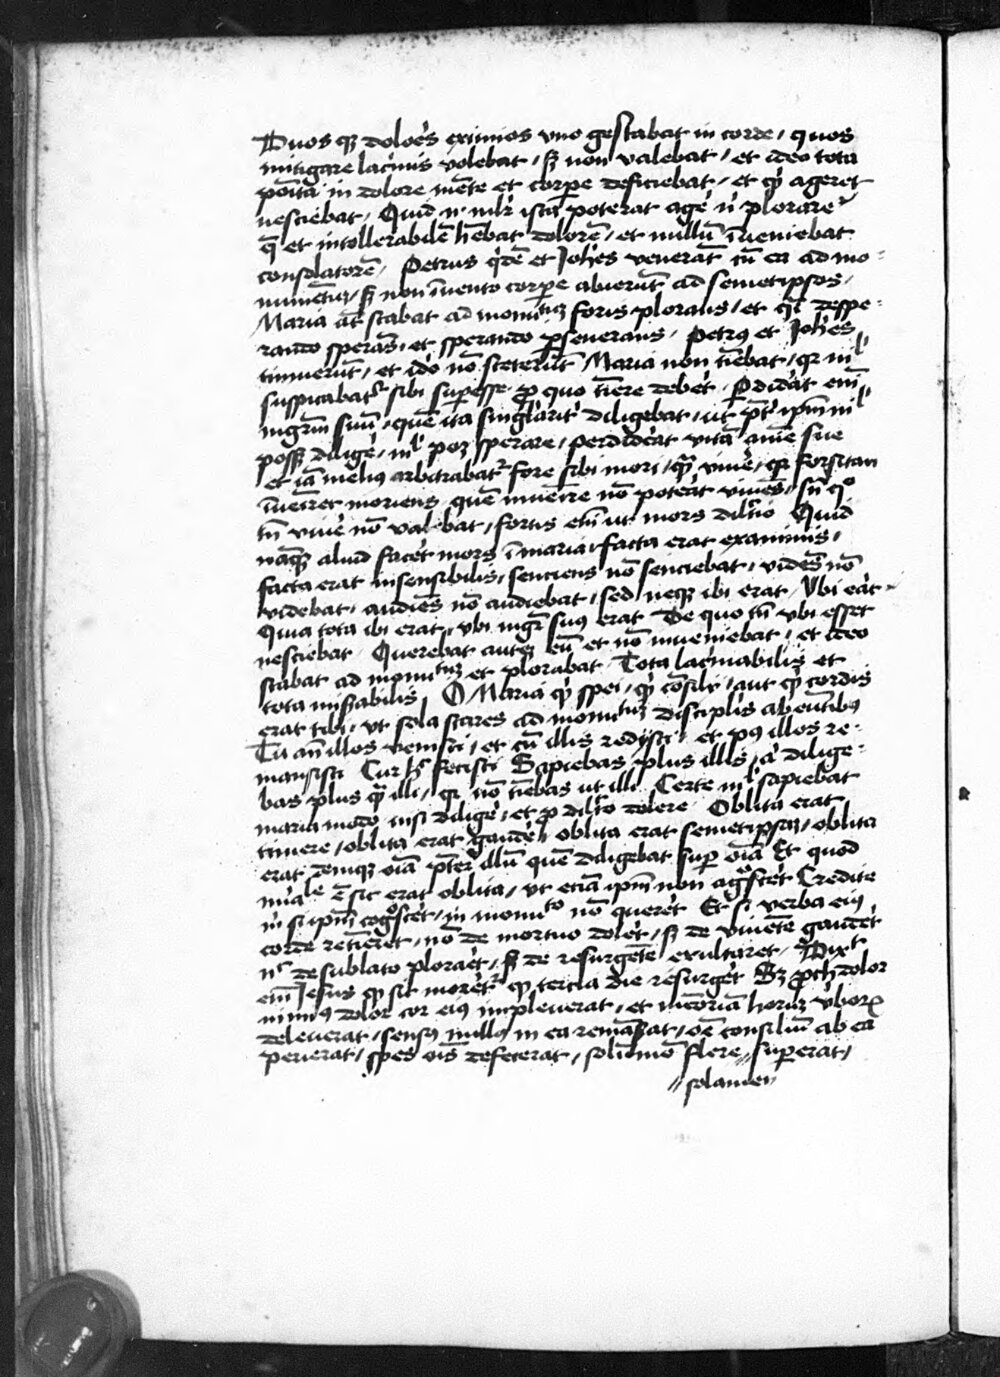 Duos q₃ doloēs eximios vno gestabat in corde / quos
mitigare lac̄mis volebat / s₃ non valebat / et ideo tota
posita in dolore mēte et corpe deficiebat / et qͥ ageret
nesciebat / Quid n mlr ista poterat agē n plorare
q̄ et intollerabilē hēbat dolorē / et nullū īueniebat
consolatorē / Petrus qͥdē et Joh̄es venerāt cū ea ad mo-
numētuꝫ / s₃ non īuento corpe abierūt ad semetipsos /
Maria āt stabat ad monuᵗuꝫ foris plorans / et qͣ despe-
rando sperās / et sperando pseuerans / Petrꝯ et Joh̄es
timuerūt / et iđo nō steterūt Maria non tīebat / qr niˡ
suspicabatʳ sibi supesse p quo tīere debēt / Pdidāt eni
mgrm suū / quē ita singlārit diligebat / ut pt ipm niˡ
poss₃ diligē / niˡ poꝫ sperare / perdidāt vitā anīe sue
et iā meliꝯ arbitrabatʳ fore sibi mori / qͣ vivē / qꝫ forsitan
īueīret moriens quē inueīre nō poteāt viuēs / sn qͦ
tn vivē nō valebat / fortis eni ut mors dilcio Quid
naq₃ aliud facēt mors ī maria / facta erat exanimis /
facta erat insensibilis / senciens nō senciebat / vidēs nō
videbat / audiēs nō audiebat / sed neq₃ ibi erat / Vbi eāt
Quia tota ibi erat / vbi mgr suꝯ erat De quo tn vbi esset
nesciebat Querebat auteꝫ eū et nō inueniebat / et ideo
stabat ad monuᵗuꝫ et plorabat Tota lac̄mabilis et
tota misabilis O Maria qͥ spei / qͥ cōsilij / aut qͥ cordis
erat tibi / ut sola stares ad monuᵗuꝫ disciplis abeūtibꝯ
Tu an illos venisti / et cū illis redisti / et pꝯ illos re-
mansisti Cur hͦ fecisti Sapiebas plus illis / a dilige-
bas plus qͣ illi / qr nō tīebas ut illi Certe niˡ sapiebat
maria modo nisi diligē / et p dilcō dolere Oblita erat
timere / oblita erat gaudē / oblita erat semetipsaꝫ / oblita
erat deniq₃ oīa pter illū quē diligebat sup oīa Et quod
mirāˡᵉ ē sic erat oblita / ut etiā ipm non agͦscēt Credite
m si ipm cogͦscēt / in monuᵗᵒ nō querēt Et si verba eiꝯ
corde retīeret / nō de mortuo dolēt / s₃ de viuēte gaudēt
nᶜ de sublato plorāēt / s₃ de resurgēte exultaret / Dixᵗ
eni Jesus qꝫ sic morētʳ qꝫ tercia die resurgēt Sꝫ proch dolor
nimiꝯ dolor cor eiꝯ impleuerat / et memoriā horuꝫ vborꝝ
deleuerat / sensꝯ nullꝯ in ea remāsat / oē consiliū ab ea
perierat / spes oīs defecerat / solūmo flere superat /
solamen